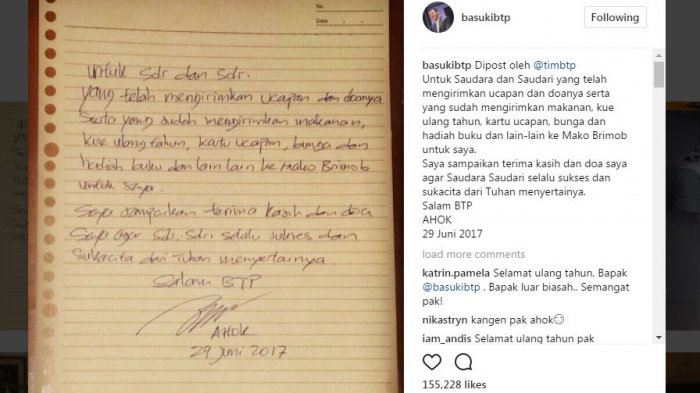 No.
Date
untuk sdr dan sdri.
yang telah mengirimkan ucapan dan doanya
serta yang sudah mengirimkan makanan,
kue ulang tahun, kartu ucapan, bunga dan
hadiah buku dan lain lain ke Mako Brimob
untuk saya.
Saya sampaikan terima kasih dan doa
saya agar sdr. sdri selalu sukses dan
sukacita dari Tuhan menyertainya
Salam BTP
AHOK
29 Juni 2017
basukibtp
Following
basukibtp Dipost oleh @timbtp
Untuk Saudara dan Saudari yang telah
mengirimkan ucapan dan doanya serta
yang sudah mengirimkan makanan, kue
ulang tahun, kartu ucapan, bunga dan
hadiah buku dan lain-lain ke Mako Brimob
untuk saya.
Saya sampaikan terima kasih dan doa saya
agar Saudara Saudari selalu sukses dan
sukacita dari Tuhan menyertainya.
Salam BTP
AHOK
29 Juni 2017
load more comments
katrin.pamela Selamat ulang tahun, Bapak
@basukibtp . Bapak luar biasah.. Semangat
pak!
nikastryn kangen pak ahok😔
iam_andis Selamat ulang tahun pak
155,228 likes